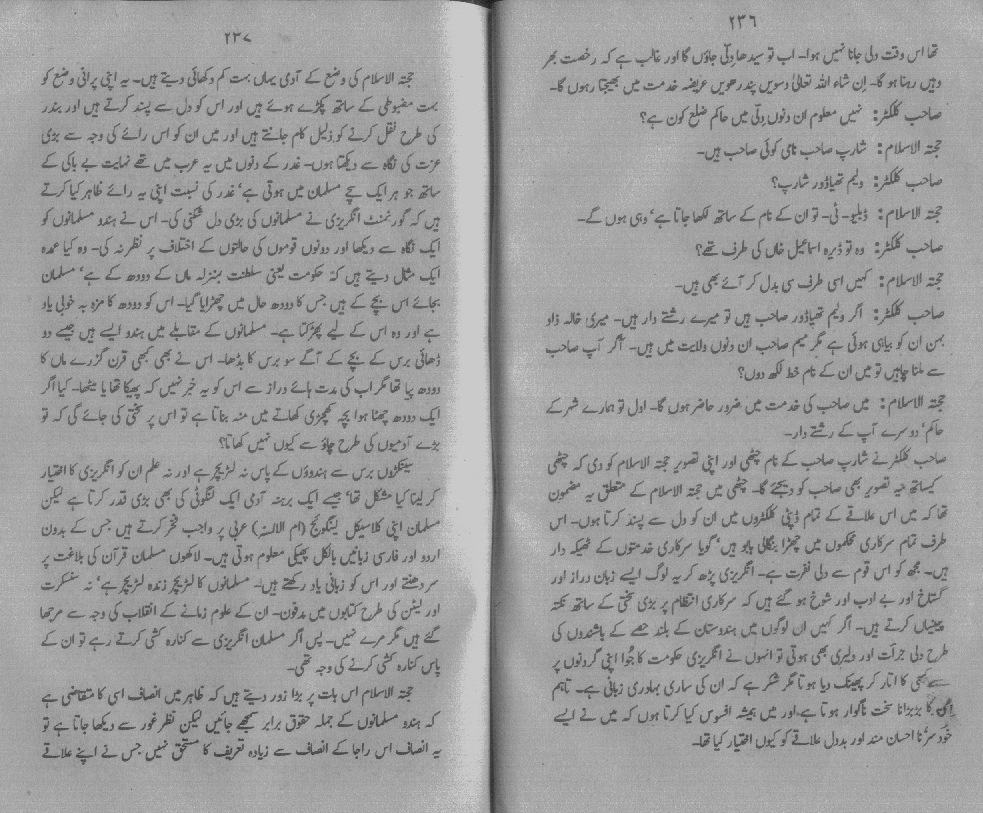 ۲۳۶
تھا اس وقت دلی جانا نہیں ہوا۔ اب تو سیدھا دِلّی جاؤں گا اور غالب ہے کہ رخصت بھر
وہیں رہنا ہو گا۔ اِن شاء اللہ تعالیٰ دسویں پندرھویں عریضہ خدمت میں بھیجتا رہوں گا۔
صاحب کلکٹر: نہیں معلوم ان دنوں دِلّی میں حاکم ضلع کون ہے؟
حجتہ الاسلام: شارپ صاحب نامی کوئی صاحب ہیں۔
صاحب کلکٹر: ولیم تھیاڈور شارپ؟
حجتہ الاسلام: ڈبلیو۔ ٹی۔ تو ان کے نام کے ساتھ لکھا جاتا ہے‘ وہی ہوں گے۔
صاحب کلکٹر: وہ تو ڈیرہ اسماعیل خاں کی طرف تھے؟
حجتہ الاسلام: کہیں اسی طرف سی بدل کر آئے بھی ہیں۔
صاحب کلکٹر: اگر ولیم تھیاڈور صاحب ہیں تو میرے رشتے دار ہیں۔ میری خالہ زاد
بہن ان کو بیاہی ہوئی ہے مگر میم صاحب ان دنوں ولایت میں ہیں۔ اگر آپ صاحب
سے ملنا چاہیں تو میں ان کے نام خط لکھ دوں؟
حجتہ الاسلام: میں صاحب کی خدمت میں ضرور حاضر ہوں گا۔ اول تو ہمارے شہر کے
حاکم‘ دوسرے آپ کے رشتے دار۔
صاحب کلکٹر نے شارپ صاحب کے نام چٹھی اور اپنی تصویر حجتہ الاسلام کو دی کہ چٹھی
کیساتھ یہ تصویر بھی صاحب کو دیجئے گا۔ چٹھی میں حجتہ الاسلام کے متعلق یہ مضمون
تھا کہ میں اس علاقے کے تمام ڈپٹی کلکٹروں میں ان کو دل سے پسند کرتا ہوں۔ اس
طرف تمام سرکاری محکموں میں چھڑا بنگالی بابو ہیں‘ گویا سرکاری خدمتوں کے ٹھیکہ دار
ہیں۔ مجھ کو اس قوم سے دلی نفرت ہے۔ انگریزی پڑھ کر یہ لوگ ایسے زبان دراز اور
گستاخ اور بے ادب اور شوخ ہو گئے ہیں کہ سرکاری انتظام پر بڑی سختی کے ساتھ نکتہ
چینیاں کرتے ہیں۔ اگر کہیں ان لوگوں میں ہندوستان کے بلند حصے کے باشندوں کی
طرح دلی جرأت اور دلیری بھی ہوتی تو انہوں نے انگریزی حکومت کا جُوا اپنی گردنوں پر
سے کبھی کا اتار کر پھینک دیا ہوتا مگر شکر ہے کہ ان کی ساری بہادری زبانی ہے۔ تاہم
ان کا بڑبڑانا سخت ناگوار ہوتا ہے‘ اور میں ہمیشہ افسوس کیا کرتا ہوں کہ میں نے ایسے
احسان مند اور بددل علاقے کو کیوں اختیار کیا تھا۔
۲۳۷
حجتہ الاسلام کی وضع کے آدمی یہاں بہت کم دکھائی دیتے ہیں۔ یہ اپنی پرانی وضع کو
بہت مضبوطی کے ساتھ پکڑے ہوئے ہیں اور اس کو دل سے پسند کرتے ہیں اور بندر
کی طرح نقل کرنے کو ذلیل کام جانتے ہیں اور میں ان کو اس رائے کی وجہ سے بڑی
عزت کی نگاہ سے دیکھتا ہوں۔ غدر کے دنوں میں یہ عرب میں تھے نہایت بے باکی کے
ساتھ جو ہر ایک سچے مسلمان میں ہوتی ہے‘ غدر کی نسبت اپنی یہ رائے ظاہر کیا کرتے
ہیں کہ گورنمنٹ انگریزی نے مسلمانوں کی بڑی دل شکنی کی۔ اس نے ہندو مسلمانوں کو
ایک نگاہ سے دیکھا اور دونوں قوموں کی حالتوں کے اختلاف پر نظر نہ کی۔ وہ کیا عمدہ
ایک مثال دیتے ہیں کہ حکومت یعنی سلطنت بمنزلہ ماں کے دودھ کے ہے‘ مسلمان
بجائے اس بچے کے ہیں جس کا دودھ حال میں چھڑایا گیا۔ اس کو دودھ کا مزہ بہ خوبی یاد
ہے اور وہ اس کے لیے پھڑکتا ہے۔ مسلمانوں کے مقابلے میں ہندو ایسے ہیں جیسے دو
ڈھائی برس کے بچے کے آگے سو برس کا بڈھا۔ اس نے بھی کبھی قرن گزرے ماں کا
دودھ پیا تھا مگر اب کی مدت ہائے دراز سے اس کو یہ خبر نہیں کہ پھیکا تھا یا میٹھا۔ کیا اگر
ایک دودھ چھٹا ہوا بچہ کھچڑی کھانے میں منہ بناتا ہے تو اس پر سختی کی جائے گی کہ تو
بڑے آدمیوں کی طرح چاؤ سے کیوں نہیں کھاتا؟
سینکڑوں برس سے ہندوؤں کے پاس نہ لٹریچر ہے اور نہ علم ان کو انگریزی کا اختیار
کر لینا کیا مشکل تھا‘ جیسے ایک برہنہ آدمی ایک لنگوٹی کی بھی بڑی قدر کرتا ہے لیکن
مسلمان اپنی کلاسیکل لینگوئج (ام الالسنہ) عربی پر واجب فخر کرتے ہیں جس کے بدون
اردو اور فارسی زبانیں بالکل پھیکی معلوم ہوتی ہیں۔ لاکھوں مسلمان قرآن کی بلاغت پر
سر دھنتے اور اس کو زبانی یاد رکھتے ہیں۔ مسلمانوں کا لٹریچر زندہ لٹریچر ہے‘ نہ سنسکرت
اور لیٹن کی طرح کتابوں میں مدفون۔ ان کے علوم زمانے کے انقلاب کی وجہ سے مرجھا
گئے ہیں مگر مرے نہیں۔ پس اگر مسلمان انگریزی سے کنارہ کشی کرتے رہے تو ان کے
پاس کنارہ کشی کرنے کی وجہ تھی۔
حجتہ الاسلام اس بات پر بڑا زور دیتے ہیں کہ ظاہر میں انصاف اسی کا متقاضی ہے
کہ ہندو مسلمانوں کے جملہ حقوق برابر سمجھے جائیں لیکن نظر غور سے دیکھا جاتا ہے تو
یہ انصاف اس راجا کے انصاف سے زیادہ تعریف کا مستحق نہیں جس نے اپنے علاقے